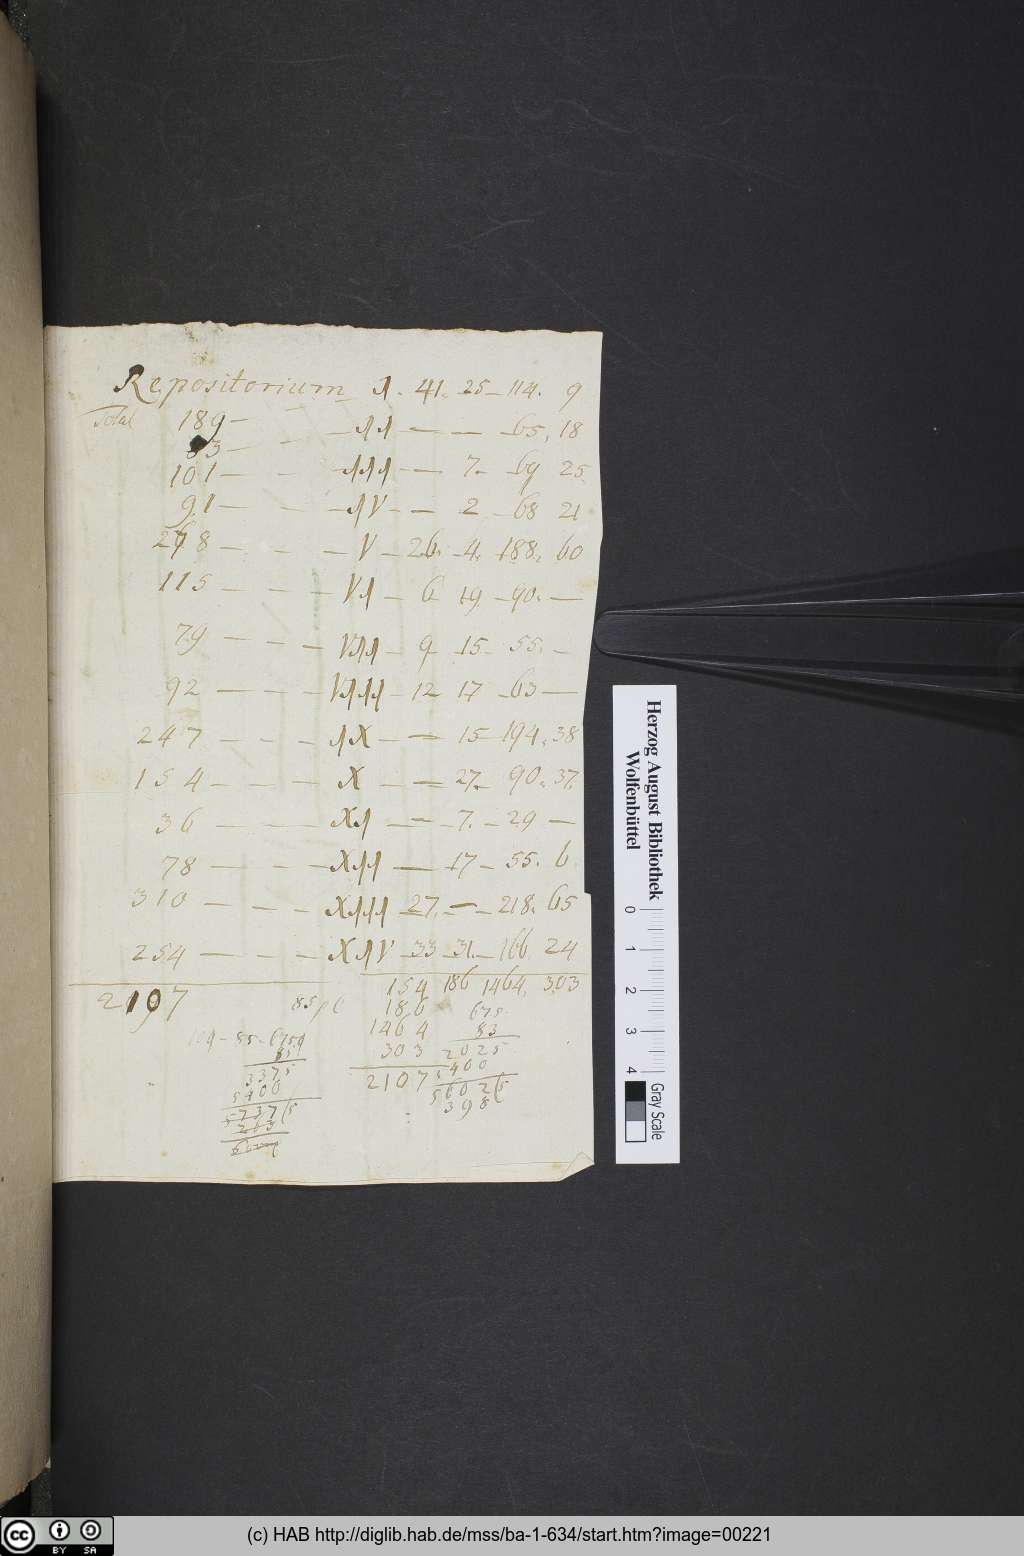 Repositorium I. 41. 25 – 114. 9
Total 189 – – – II – – – 65, 18
83 –
101 – – – III – – 7. – 69 25.
91 – – – IV – – 2 – 68 21
278 – – – V – 26. – 4. – 188. 60
115 – – – VI – 6 – 19 – 90. –
79 – – – VII – 9 – 15 – 55. –
92 – – – VIII – 12 – 17 – 63 –
247 – – – IX – – 15 – 194. 38
154 – – – X – – 27. – 90. 37.
36 – – – XI – – 7. – 29 –
78 – – – XII – – 17 – 55. 6.
310 – – – XIII – 27. – – 218. 65
254 – – – XIV – 33 – 31. – 166. 24
154 186 1464. 303
2107
186 675
1464 83
303 2025
5400
2107
5602(5
398
3375
5400
5737(5
263
Herzog August Bibliothek
Wolfenbüttel
0 1 2 3 4
Gray Scale
cc BY SA
(c) HAB http://diglib.hab.de/mss/ba-1-634/start.htm?image=00221